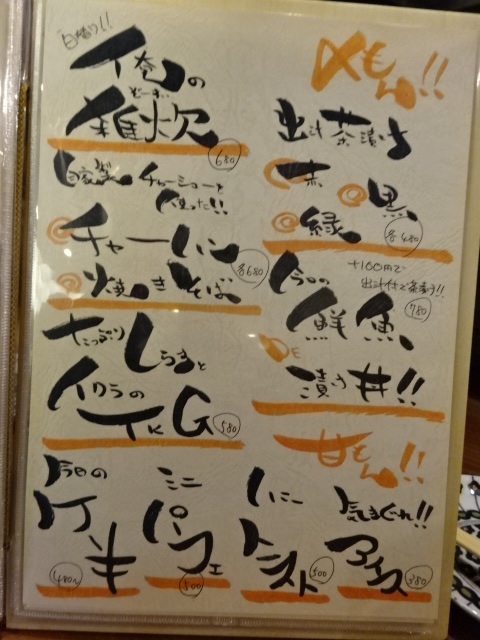 〆もん!!
出汁茶漬け
赤
黒
緑
各480
今日の
鮮魚
漬け丼!!
780
+100円で
出汁付で茶漬け!!
俺の
雑炊
ぞーすい
680
自家製チャーシューを
使った!!
チャーハン
焼きそば
各680
たっぷり
しらすと
イクラの
TKG
580
甘もん!!
今日の
ケーキ
480
ミニ
パフェ
500
ハニー
トースト
500
気まぐれ!!
アイス
380